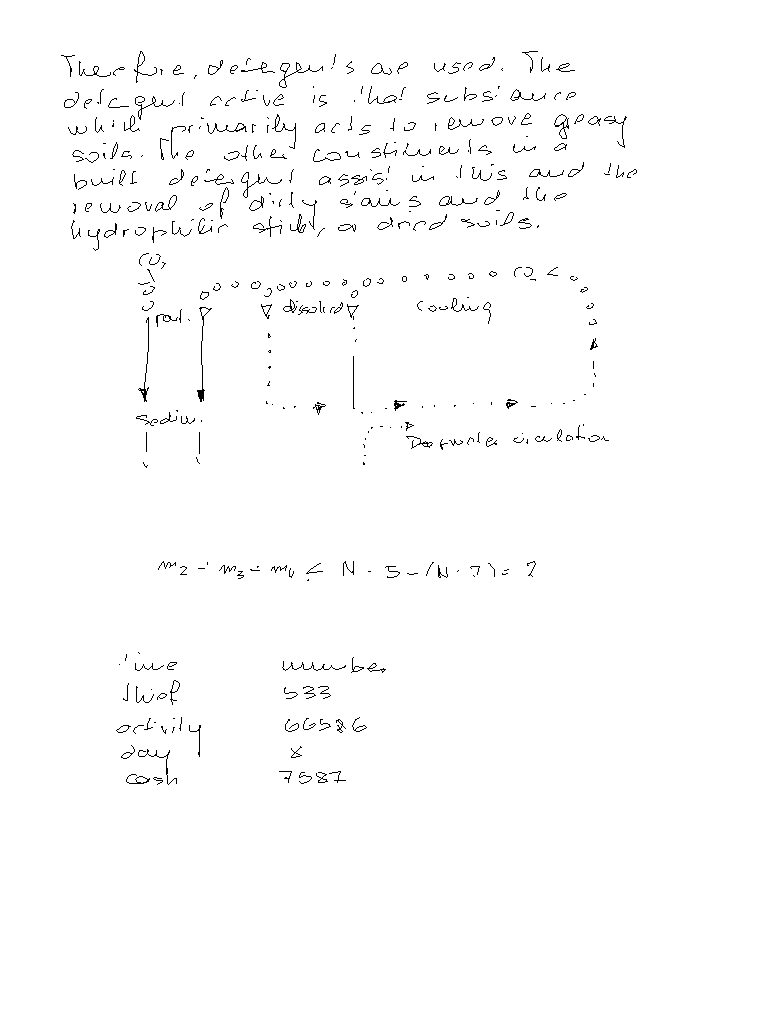 Therefore, detergents are used. The
detergent active is that substance
which primarily acts to remove greasy
soils. The other constituents in a
built detergent assist in this and the
removal of dirty stains and the
hydrophilic stick, a dried soils.
CO2
CO2 <
part. dissolved cooling
sedim.
Deepwater circulation
m2 - m3 - m4 ≤ N · 5 - (N · 7) = 2
time number
thief 533
activity 66586
day 8
cash 7587